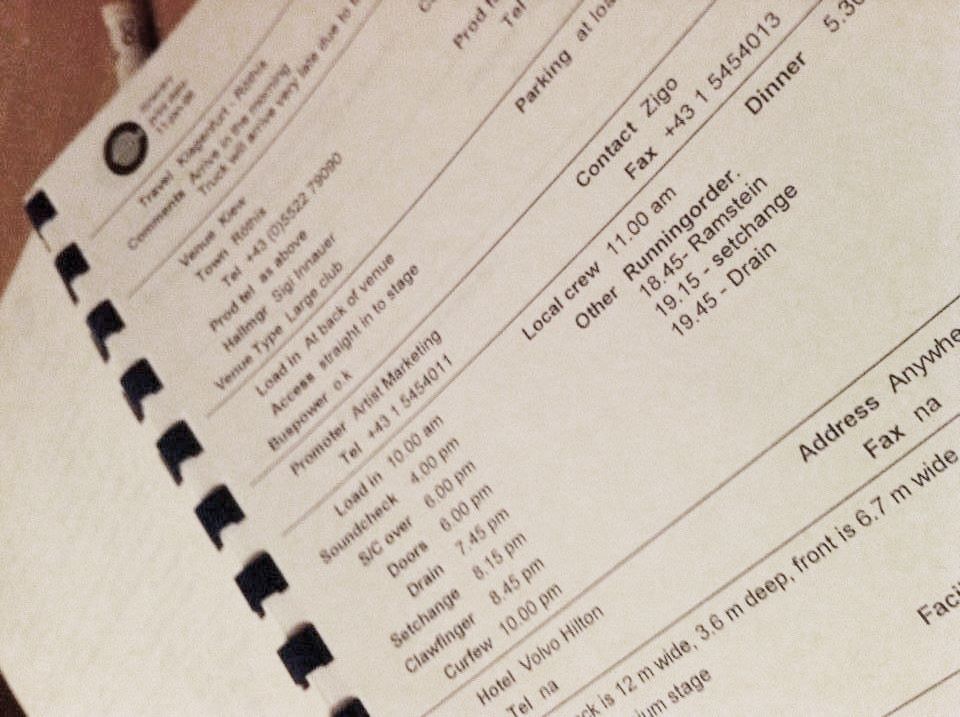 Travel Klagenfurt - Röthis
Comments Arrive in the morning
Truck will arrive very late due to
Venue Kiew
Town Röthis
Tel +43 (0)5522 79090
Prod tel as above
Hallmgr Sigi Innauer
Venue Type Large club
Prod
Tel
Load in At back of venue
Access straight in to stage
Buspower o.k
Parking at loa
Promoter Artist Marketing
Tel +43 1 5454011
Contact Zigo
Fax +43 1 5454013
Load in 10.00 am
Soundcheck 4.00 pm
S/C over 6.00 pm
Doors 6.00 pm
Drain 7.45 pm
Setchange 8.15 pm
Clawfinger 8.45 pm
Curfew 10.00 pm
Local crew 11.00 am
Other Runningorder.
18.45- Ramstein
19.15 - setchange
19.45 - Drain
Dinner 5.30
Hotel Volvo Hilton
Tel na
Address Anywhe
Fax na
ck is 12 m wide, 3.6 m deep, front is 6.7 m wide
ium stage
Facil